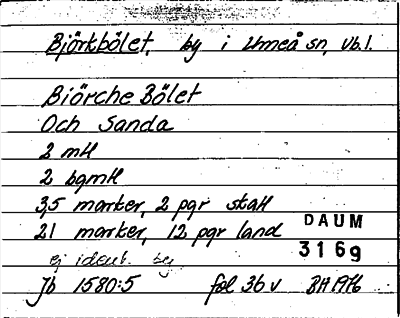 Björkbölet, by i Umeå sn, Vb.l.
Biörche Bölet
Och Sanda
2 mtl
2 bgmtl
3,5 marker, 2 pgr skatt
21 marker, 12 pgr land
DAUM
3169
ej ident. by
Jb 1580:5 fol 36 v BH 1976